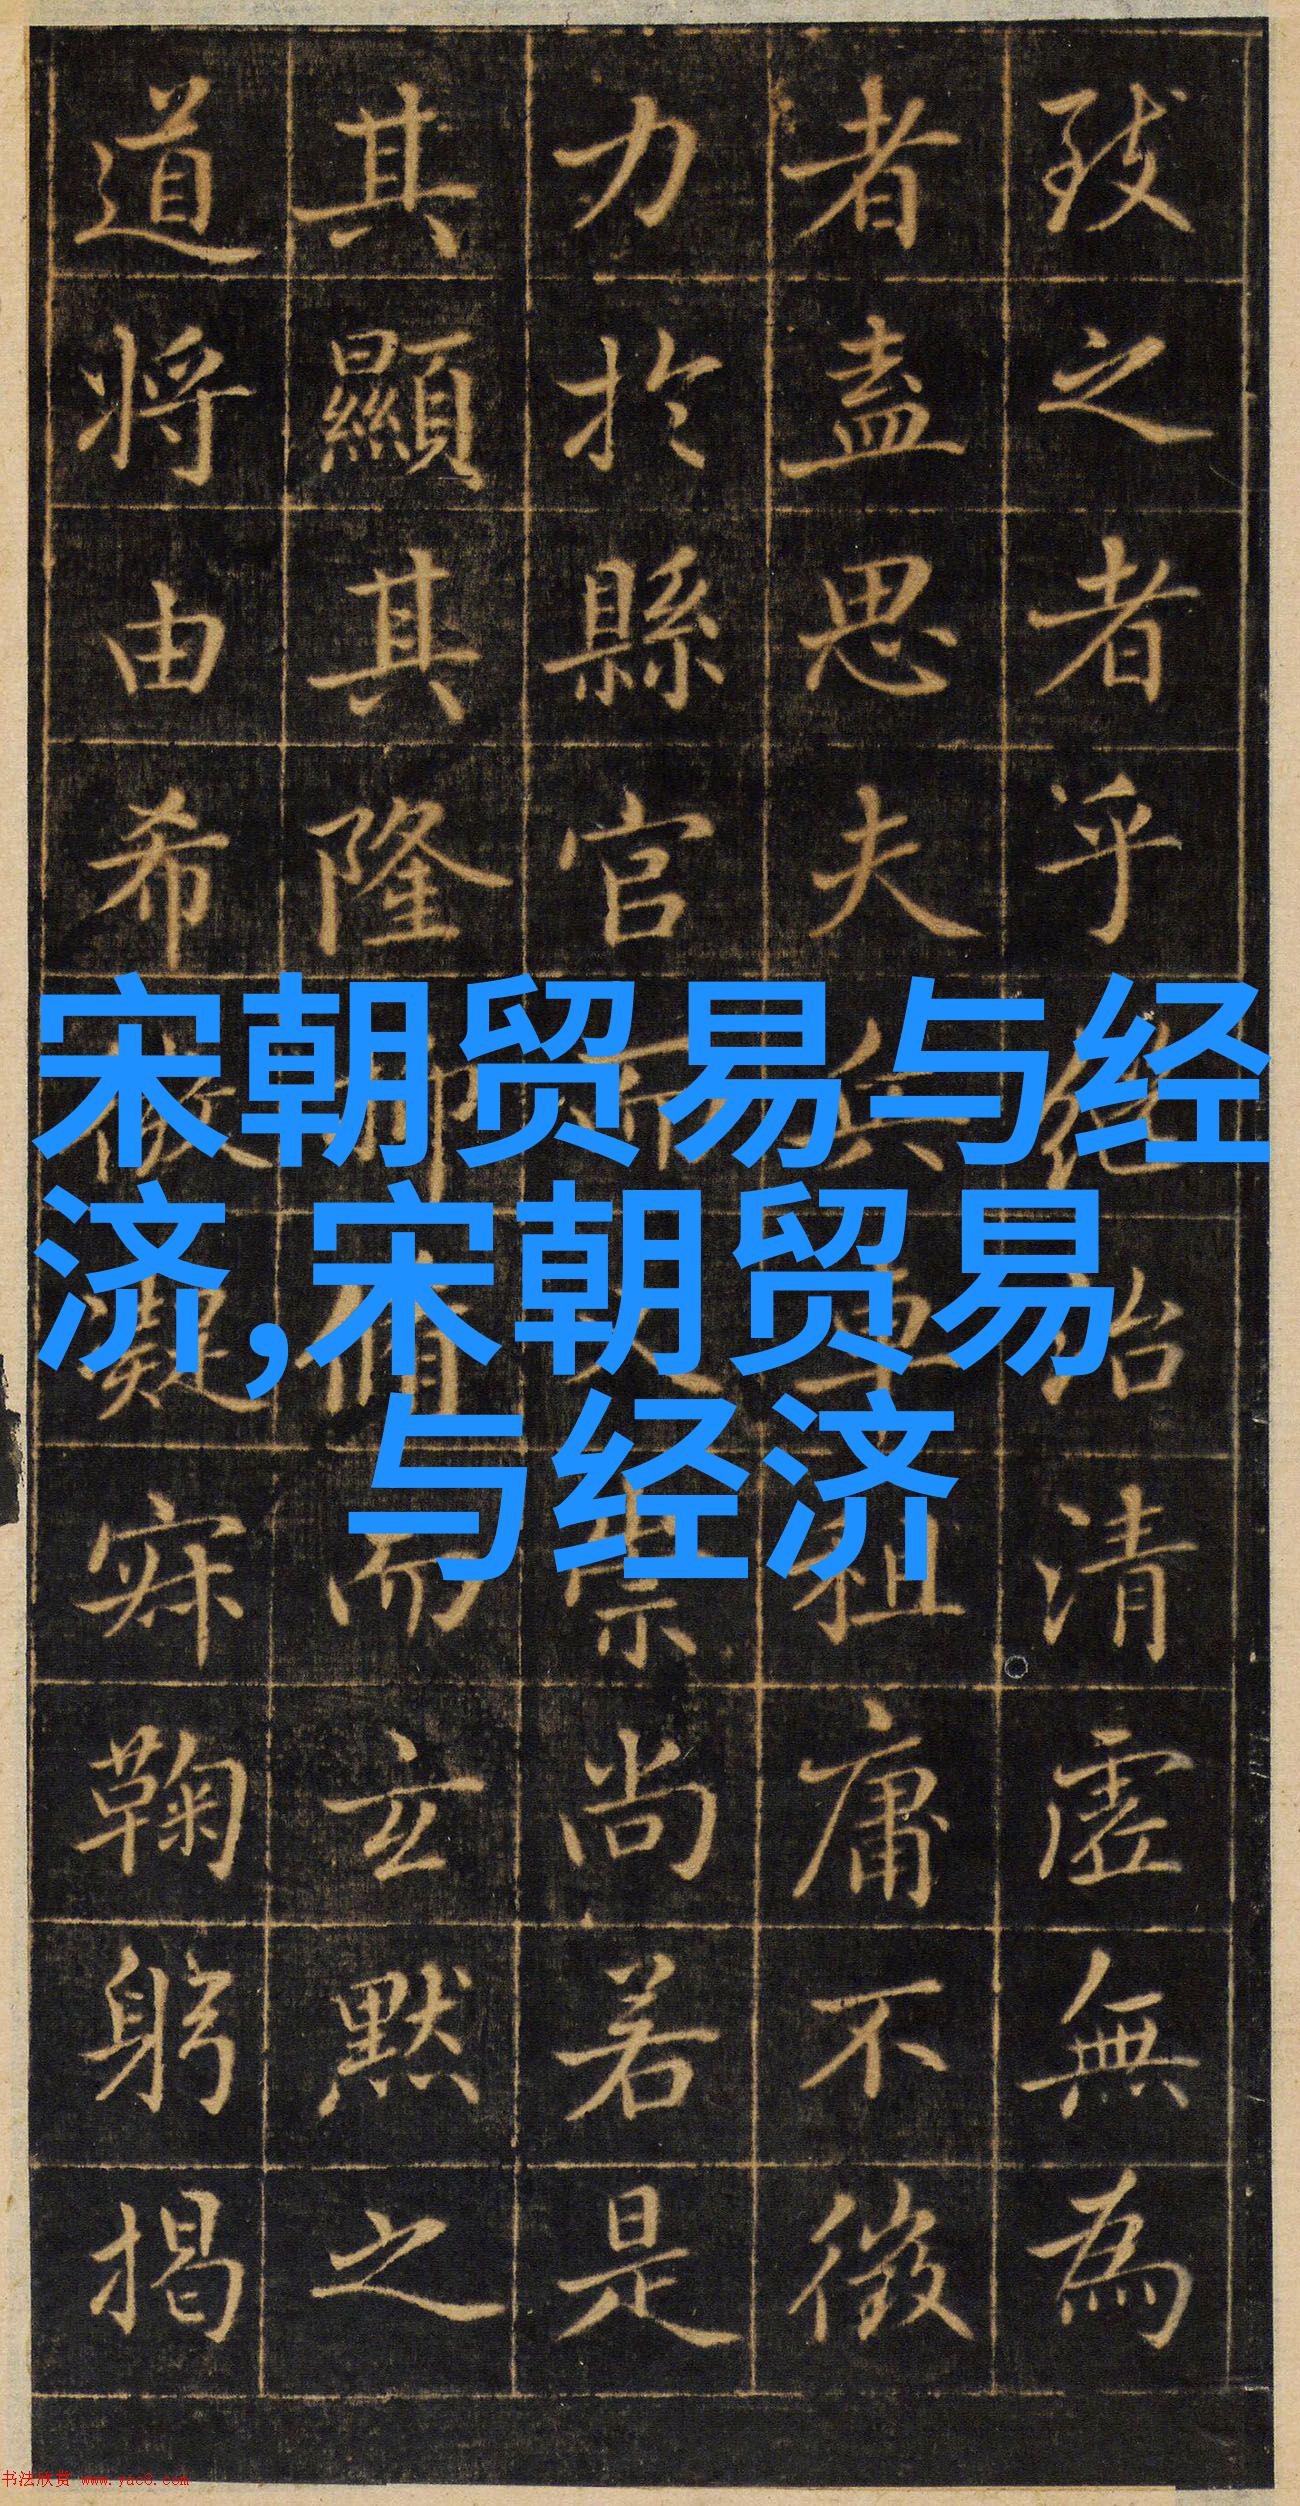 致之者乎清虛無為
者盖思夫兵租庸不徵
力於縣官而崇尚若是
其顯其隆脩而玄默之
道將由希凝寂鞠躬揭
宋朝贸易与经
济,宋朝贸易
与经济
书法欣赏 www.yac8.com